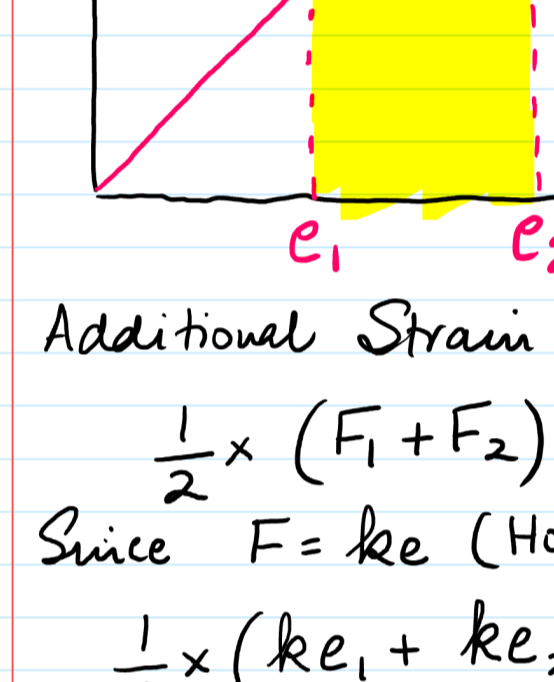 e₁ e
Additional Strain
1/2 × (F₁ + F₂)
Since F = ke (Ho
1 × (ke₁ + ke